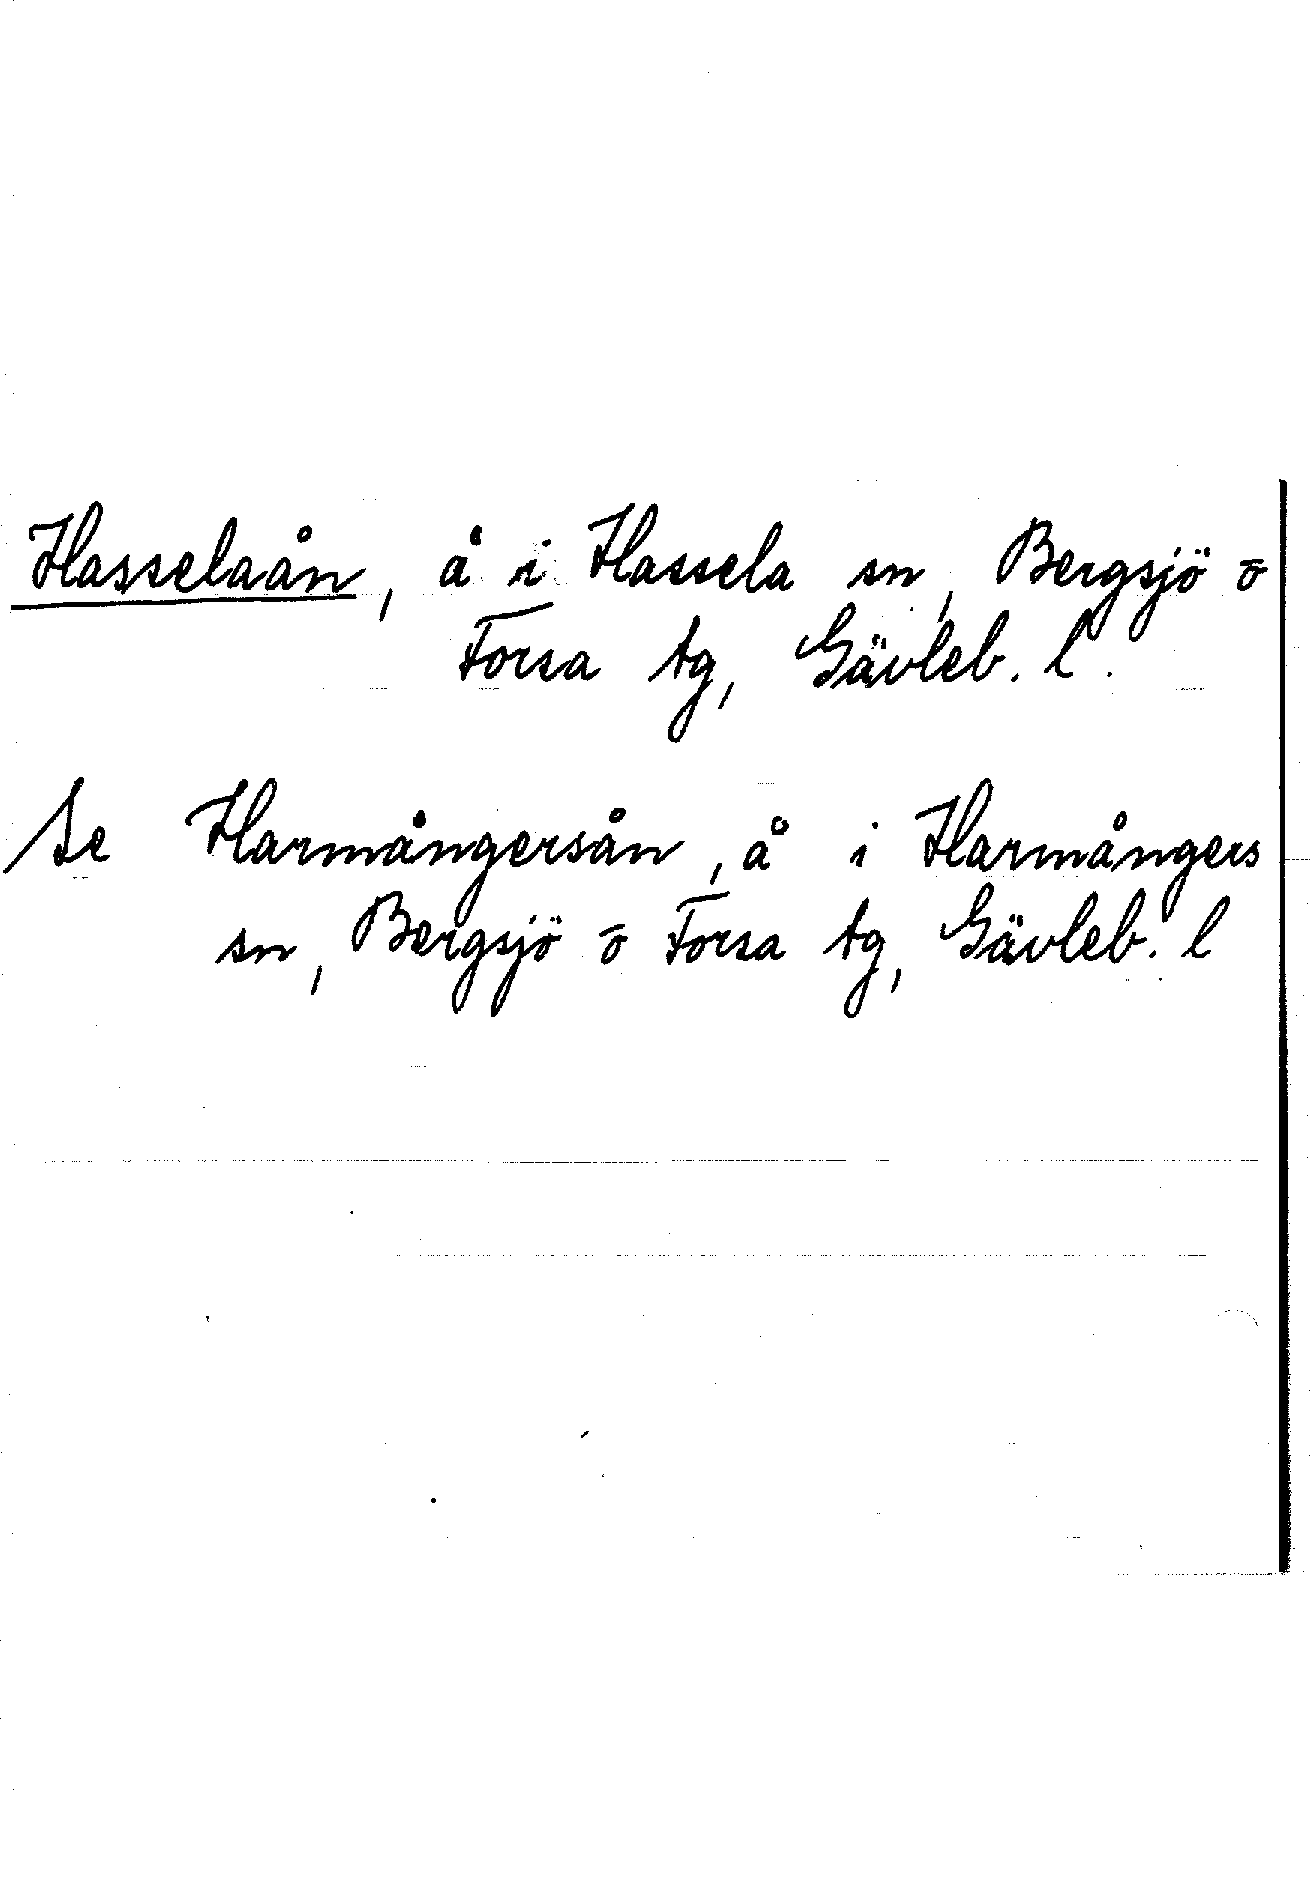 Hasselaån, å i Hassela sn, Bergsjö o
Forsa tg, Gävleb. l.
Se Harmångersån, å i Harmångers
sn, Bergsjö o Forsa tg, Gävleb. l